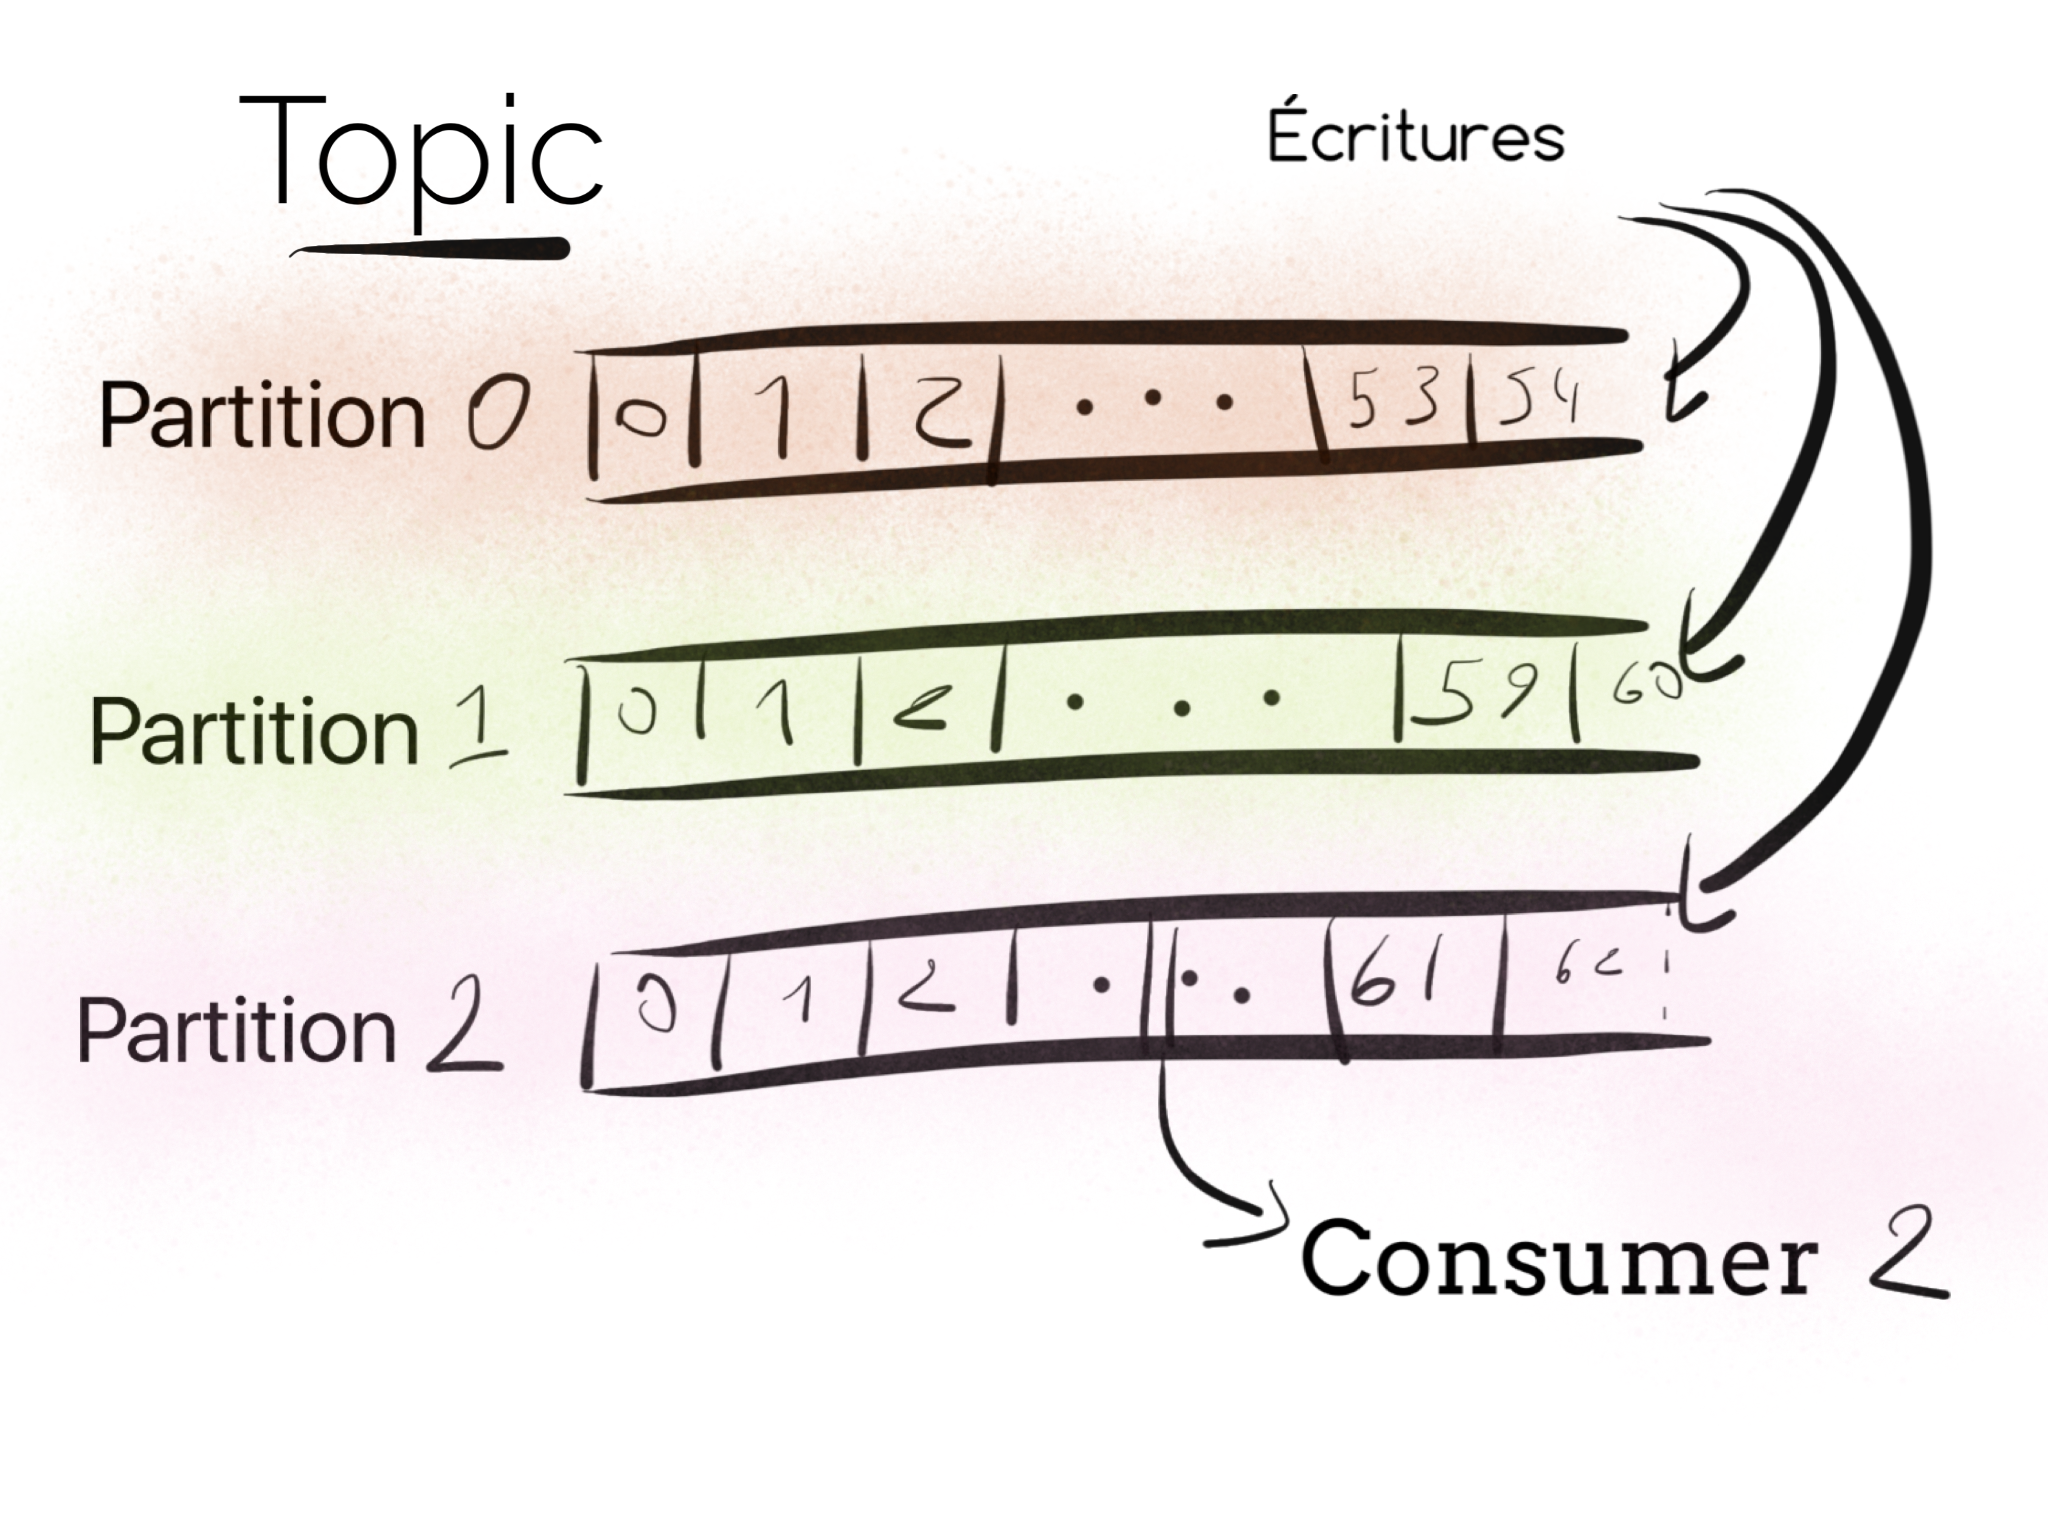 Topic
Écritures
Partition 0 0 1 2 . . . 53 54
Partition 1 0 1 2 . . . 59 60
Partition 2 0 1 2 . . . 61 62
Consumer 2